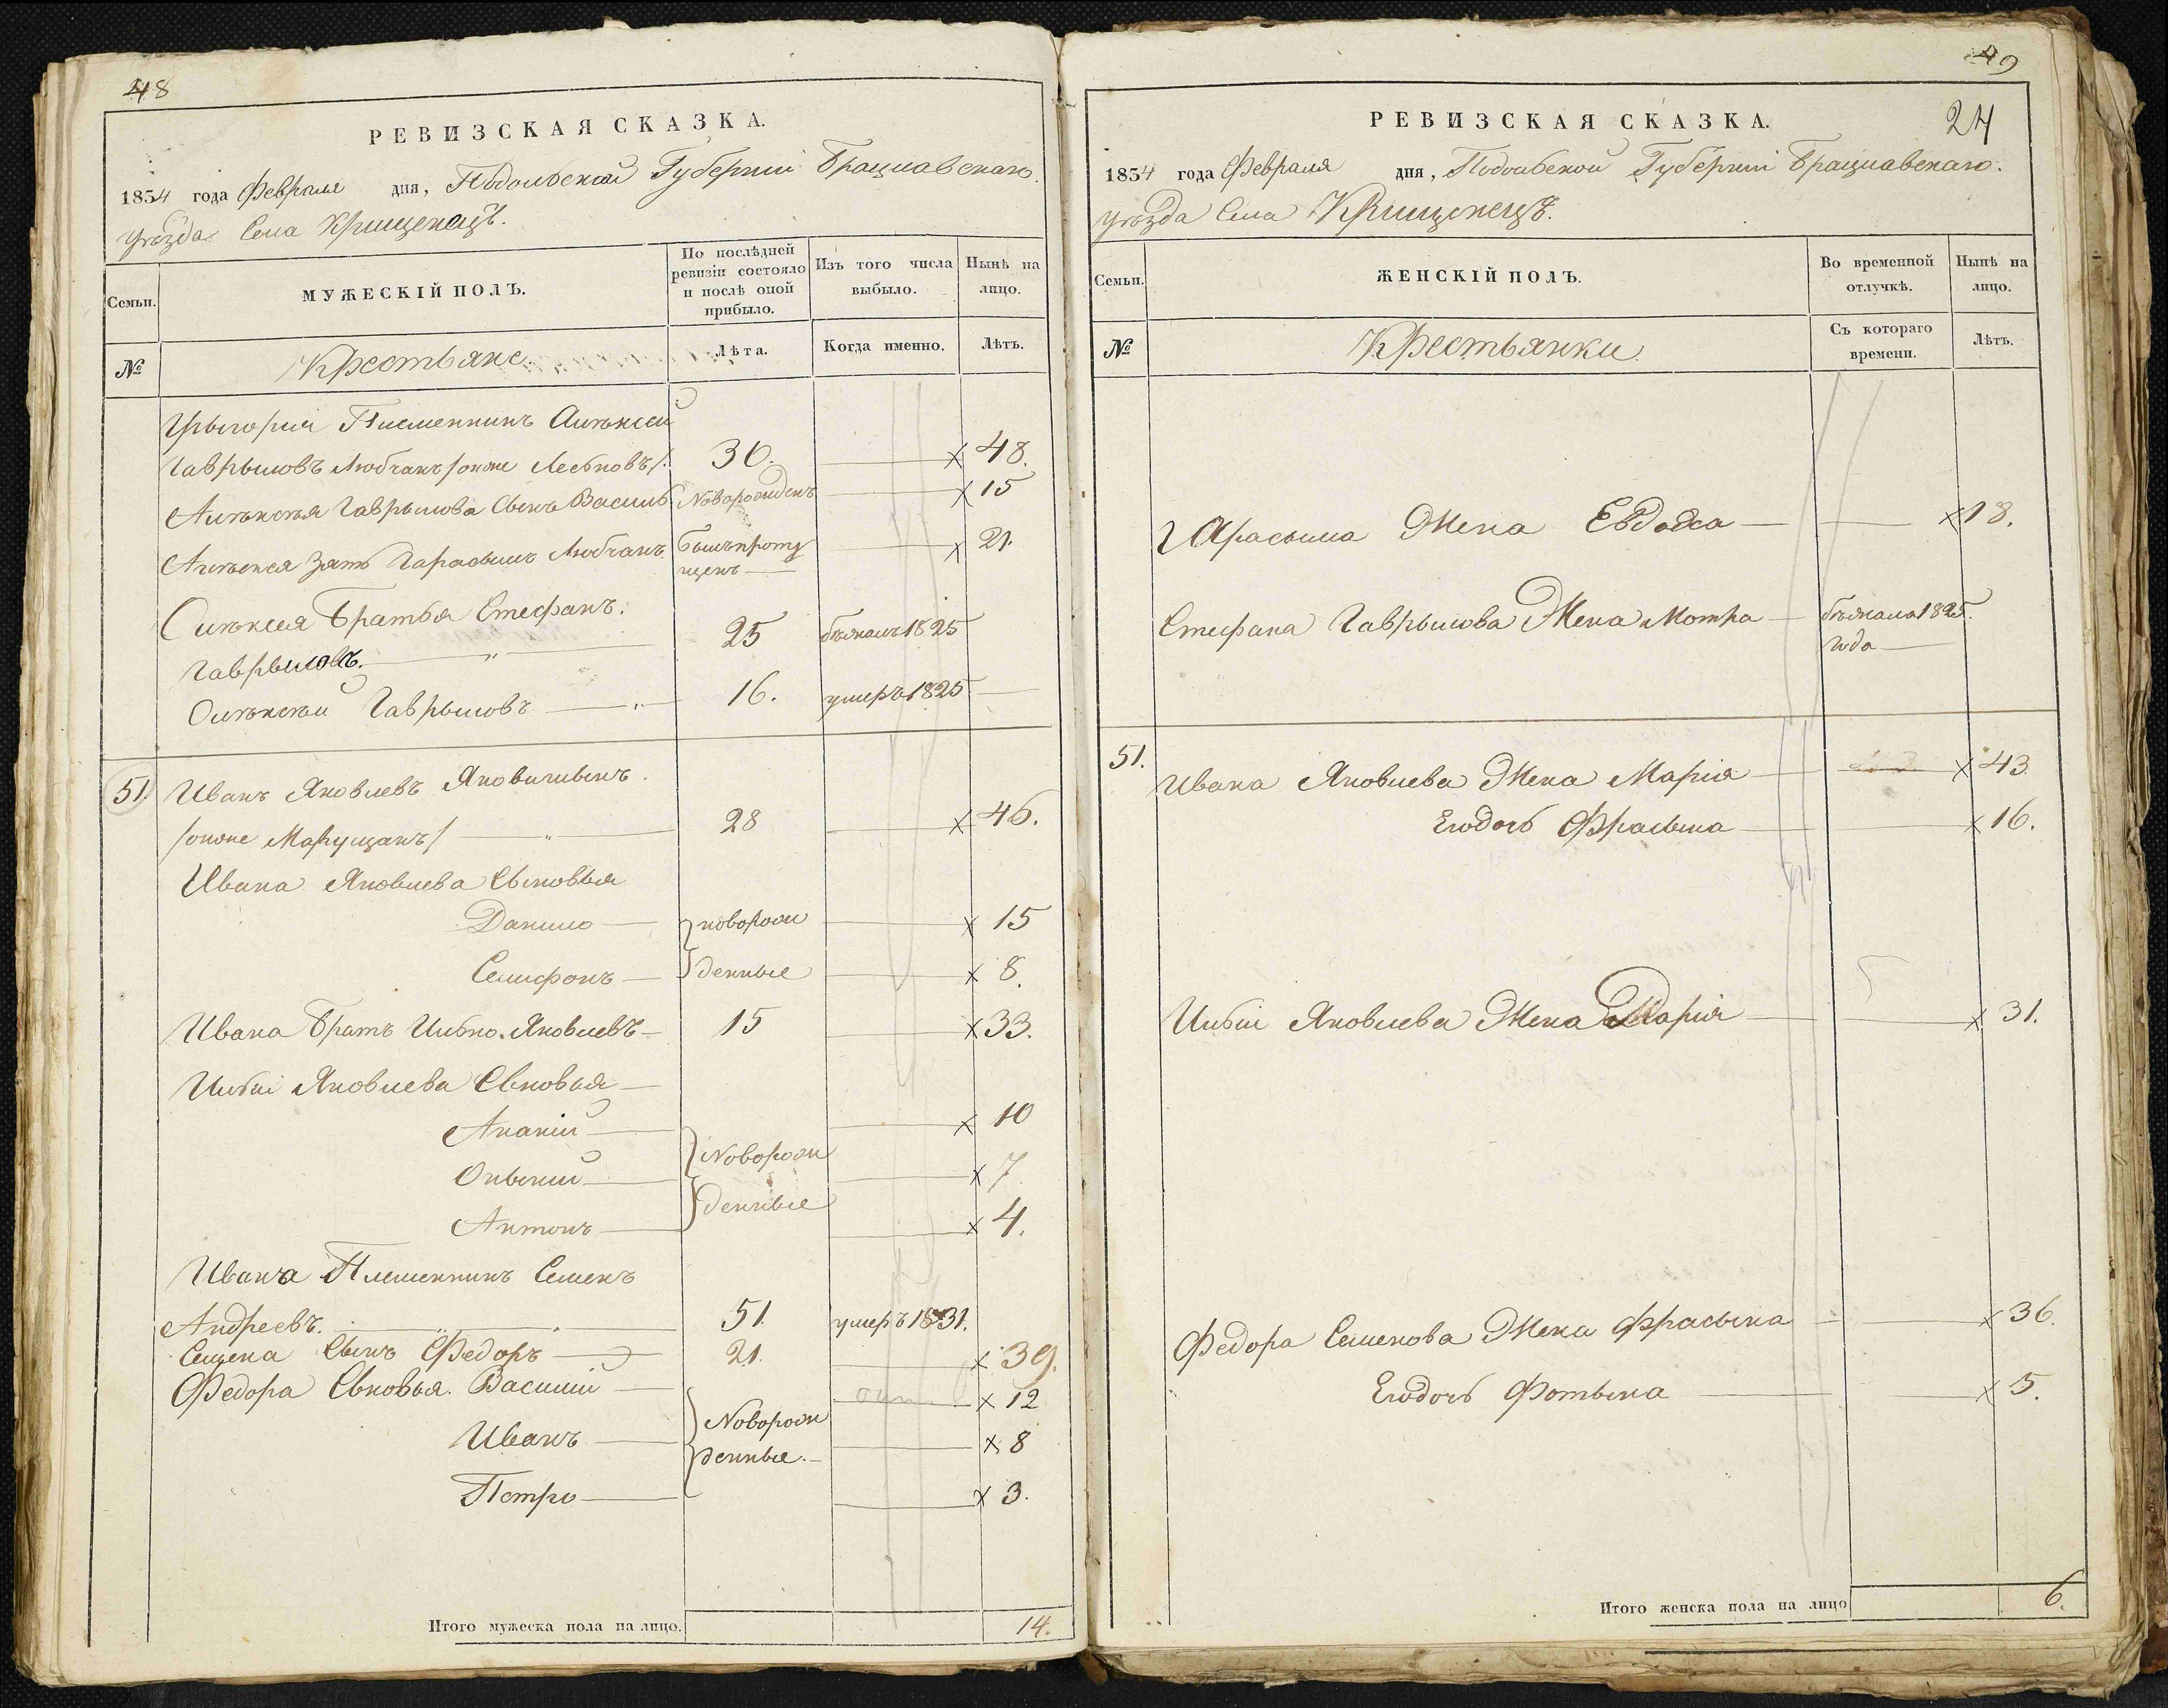 48
РЕВИЗСКАЯ СКАЗКА.
1854 года Февраля дня, Подольской Губерніи Брацлавскаго
уѣзда Села Крищенецъ.
Семьи.
МУЖЕСКІЙ ПОЛЪ.
По послѣдней ревизіи состояло и послѣ оной прибыло.
Изъ того числа выбыло.
Нынѣ на лицо.
№
Крестьяне
Лѣта.
Когда именно.
Лѣтъ.
Грыгорія Племенникъ Алѣксѣй
Гаврыловъ Любчакъ /онже Леськовъ/. 30. × 48.
Алѣксѣя Гаврылова Сынъ Василь Новорожденъ × 15
Алѣксея Зять Гарасымъ Любчакъ. былъ пропущенъ × 21.
Алѣксея Братья Стефанъ.
Гаврыловъ. 25 бѣжалъ 1825
Олѣксѣй Гаврыловъ 16. умеръ 1825
51. Иванъ Яковлевъ
/онже Марущакъ/ 28 × 46.
Ивана Яковлева Сыновья
Данило новорож × 15
Селифонъ денные × 8.
Ивана Братъ Илько Яковлевъ 15 × 33.
Илькі Яковлева Сыновья
Ананій × 10
Новорож × 7.
Антонъ денные × 4.
Ивана Племенникъ Семенъ
Андреевъ. 51. умеръ 1831.
Семена Сынъ Федоръ 21. × 39.
Федора Сыновья. Василій × 12
Иванъ Новорожденные. × 8
Петро × 3.
Итого мужеска пола на лицо. 14.
49
24
РЕВИЗСКАЯ СКАЗКА.
1854 года Февраля дня, Подольской Губерніи Брацлавскаго.
уѣзда Села Крищенецъ.
Семьи.
ЖЕНСКІЙ ПОЛЪ.
Во временной отлучкѣ.
Нынѣ на лицо.
№
Крестьянки
Съ котораго времени.
Лѣтъ.
Гарасыма Жена Евдоха × 18.
Стефана Гаврылова Жена Мотра бѣжала 1825.
года
51. Ивана Яковлева Жена Марія × 43
Егодочь Фрасына × 16.
Илькі Яковлева Жена Марія × 31.
Федора Семенова Жена Фрасына × 36.
Егодочь Фотына × 5.
Итого женска пола на лицо 6.